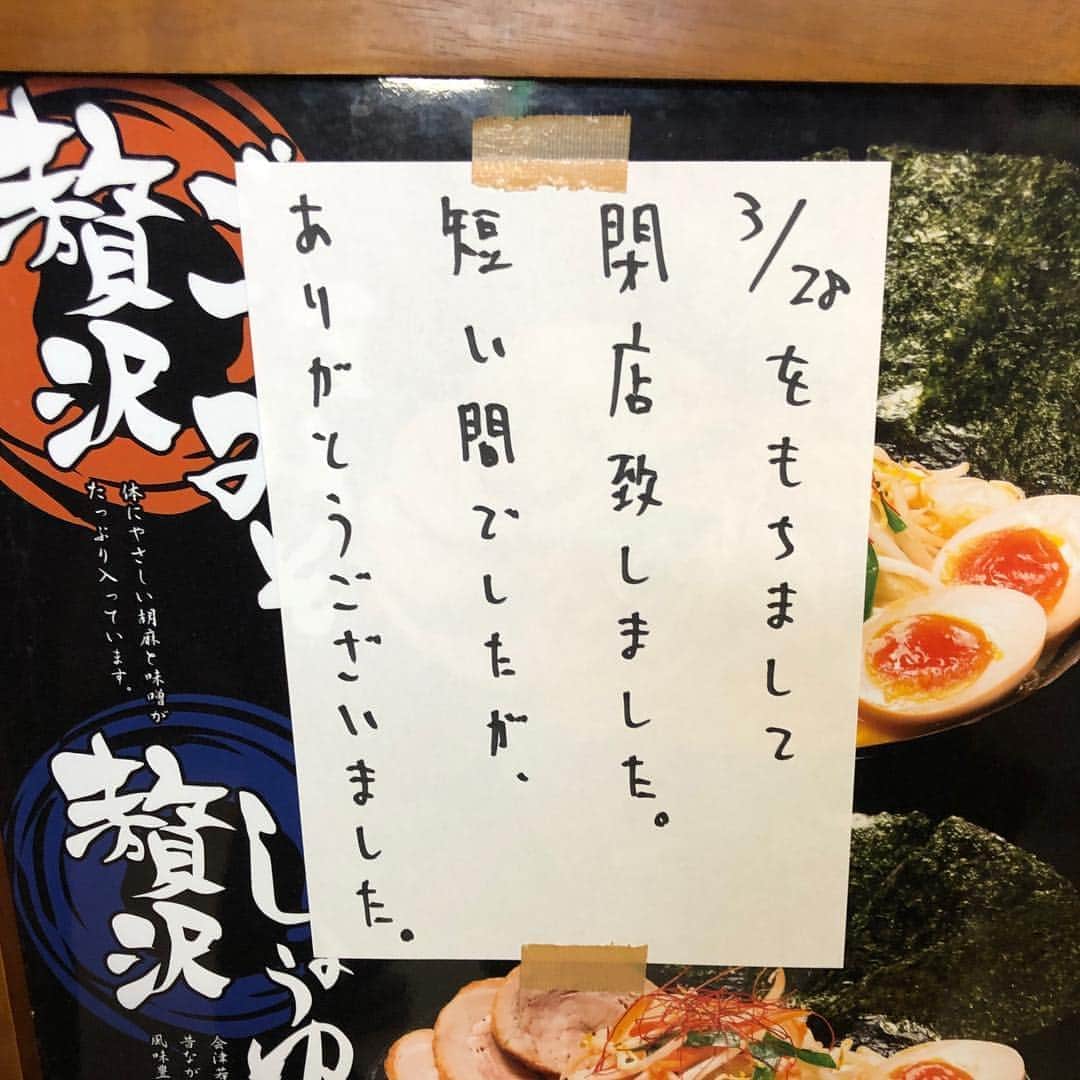 3/28をもちまして
閉店致しました。
短い間でしたが、
ありがとうございました。
贅沢
体にやさしい胡麻と味噌が
たっぷり入っています。
贅沢
しょうゆ
昔なが
風味豊